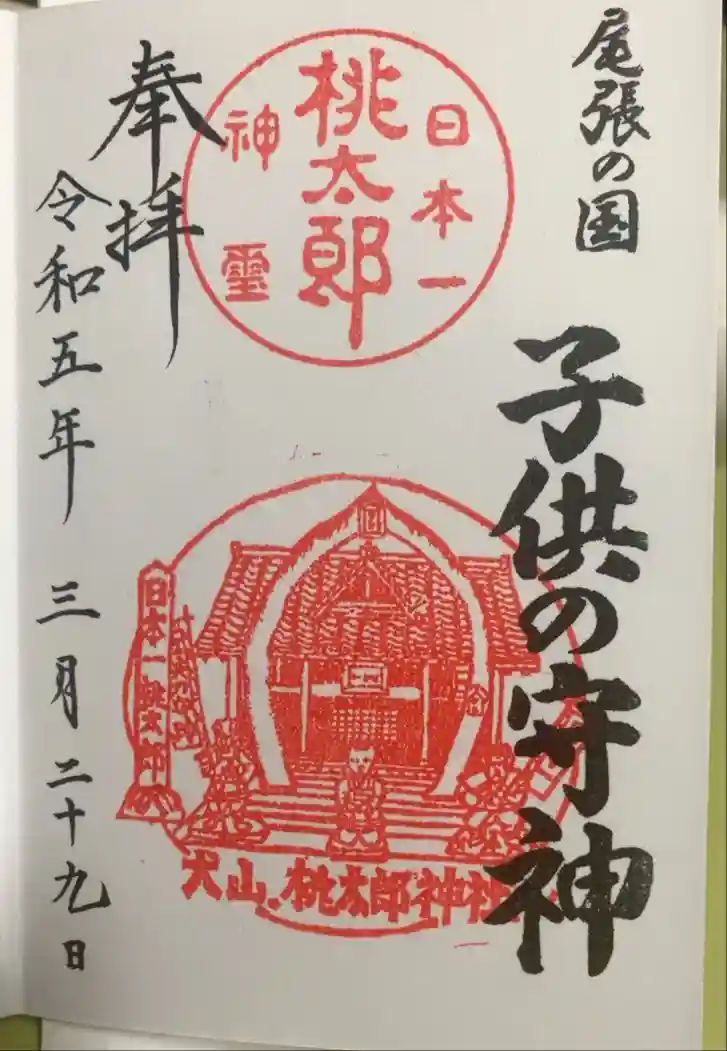 尾張の国
子供の守神
日本一
桃太郎
神霊
奉拝
令和五年 三月二十九日
日本一桃太郎
犬山.桃太郎神社